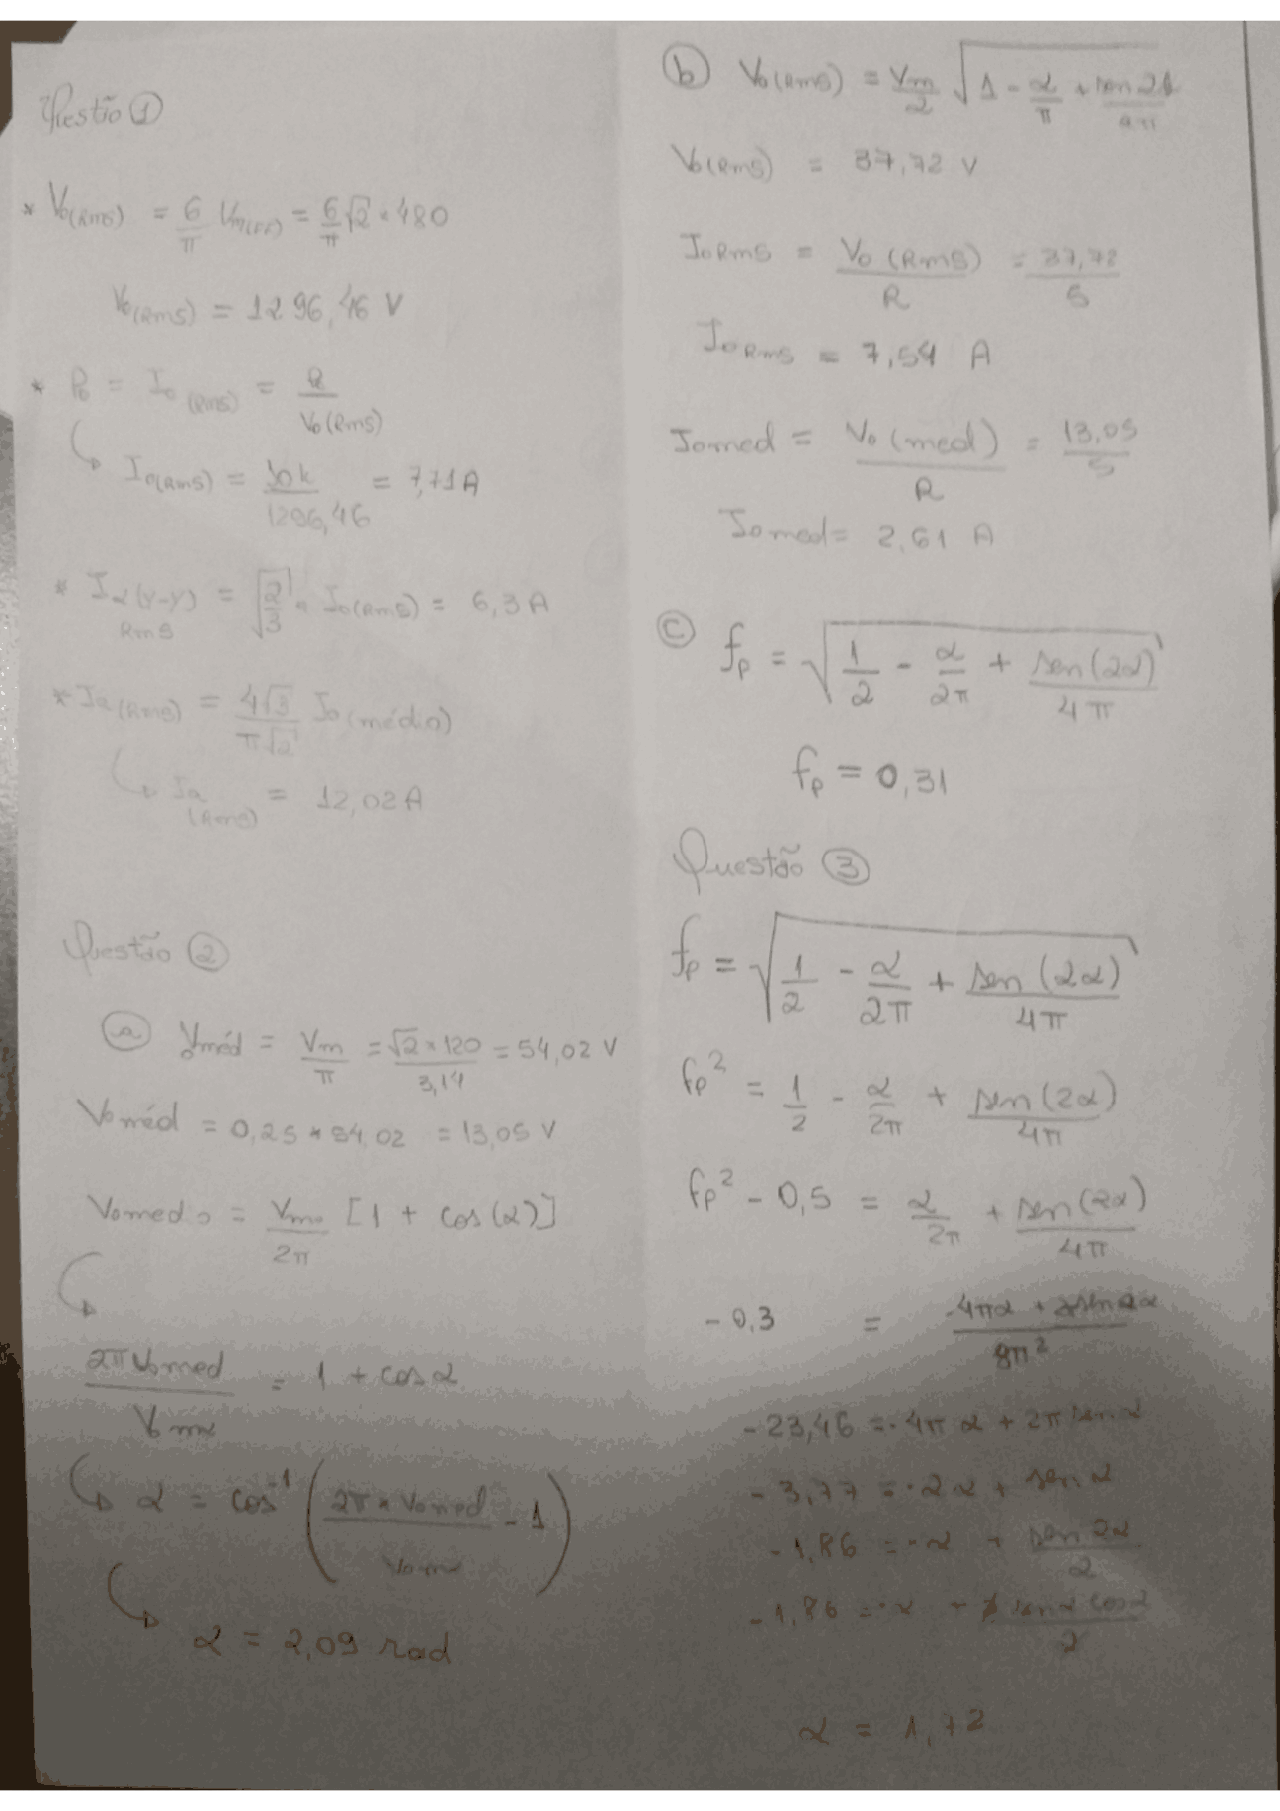 Questão 1
* Vo(Rms) = 6/π Vm(FF) = 6/π √2 * 480
Vo(Rms) = 1296,46 V
* Po = Io(Rms) = R/Vo(Rms)
Io(Rms) = 10k/1296,46 = 7,71A
* I2(Y-Y) Rms = √(2/3) * Io(Rms) = 6,3A
* Ia(Rms) = 4√3/π√2 Io(médio)
Ia(Rms) = 12,02A
Questão 2
a Vo méd = Vm/π = √2*120/3,14 = 54,02 V
Vo méd = 0,25 * 54,02 = 13,05 V
Vo medo = Vm/2π [1 + cos(α)]
2π Vomed/Vom = 1 + cos α
α = cos⁻¹(2π * Vomed/Vom - 1)
α = 2,09 rad
b Vo(Rms) = Vm/2 √(1 - α/π + sen 2α/2π)
Vo(Rms) = 37,72 V
Io Rms = Vo(Rms)/R = 37,72/5
Io Rms = 7,54 A
Iomed = Vo(med)/R = 13,05/5
Iomed = 2,61 A
c fp = √(1/2 - α/2π + sen(2α)/4π)
fp = 0,31
Questão 3
fp = √(1/2 - α/2π + sen(2α)/4π)
fp² = 1/2 - α/2π + sen(2α)/4π
fp² - 0,5 = α/2π + sen(2α)/4π
-0,3 = -4πα + sen2α/8π²
-23,46 = -4πα + 2π sen α
-3,77 = -2α + sen α
-1,86 = -α + sen 2α/2
-1,86 = -α + sen α cos α/2
α = 1,72